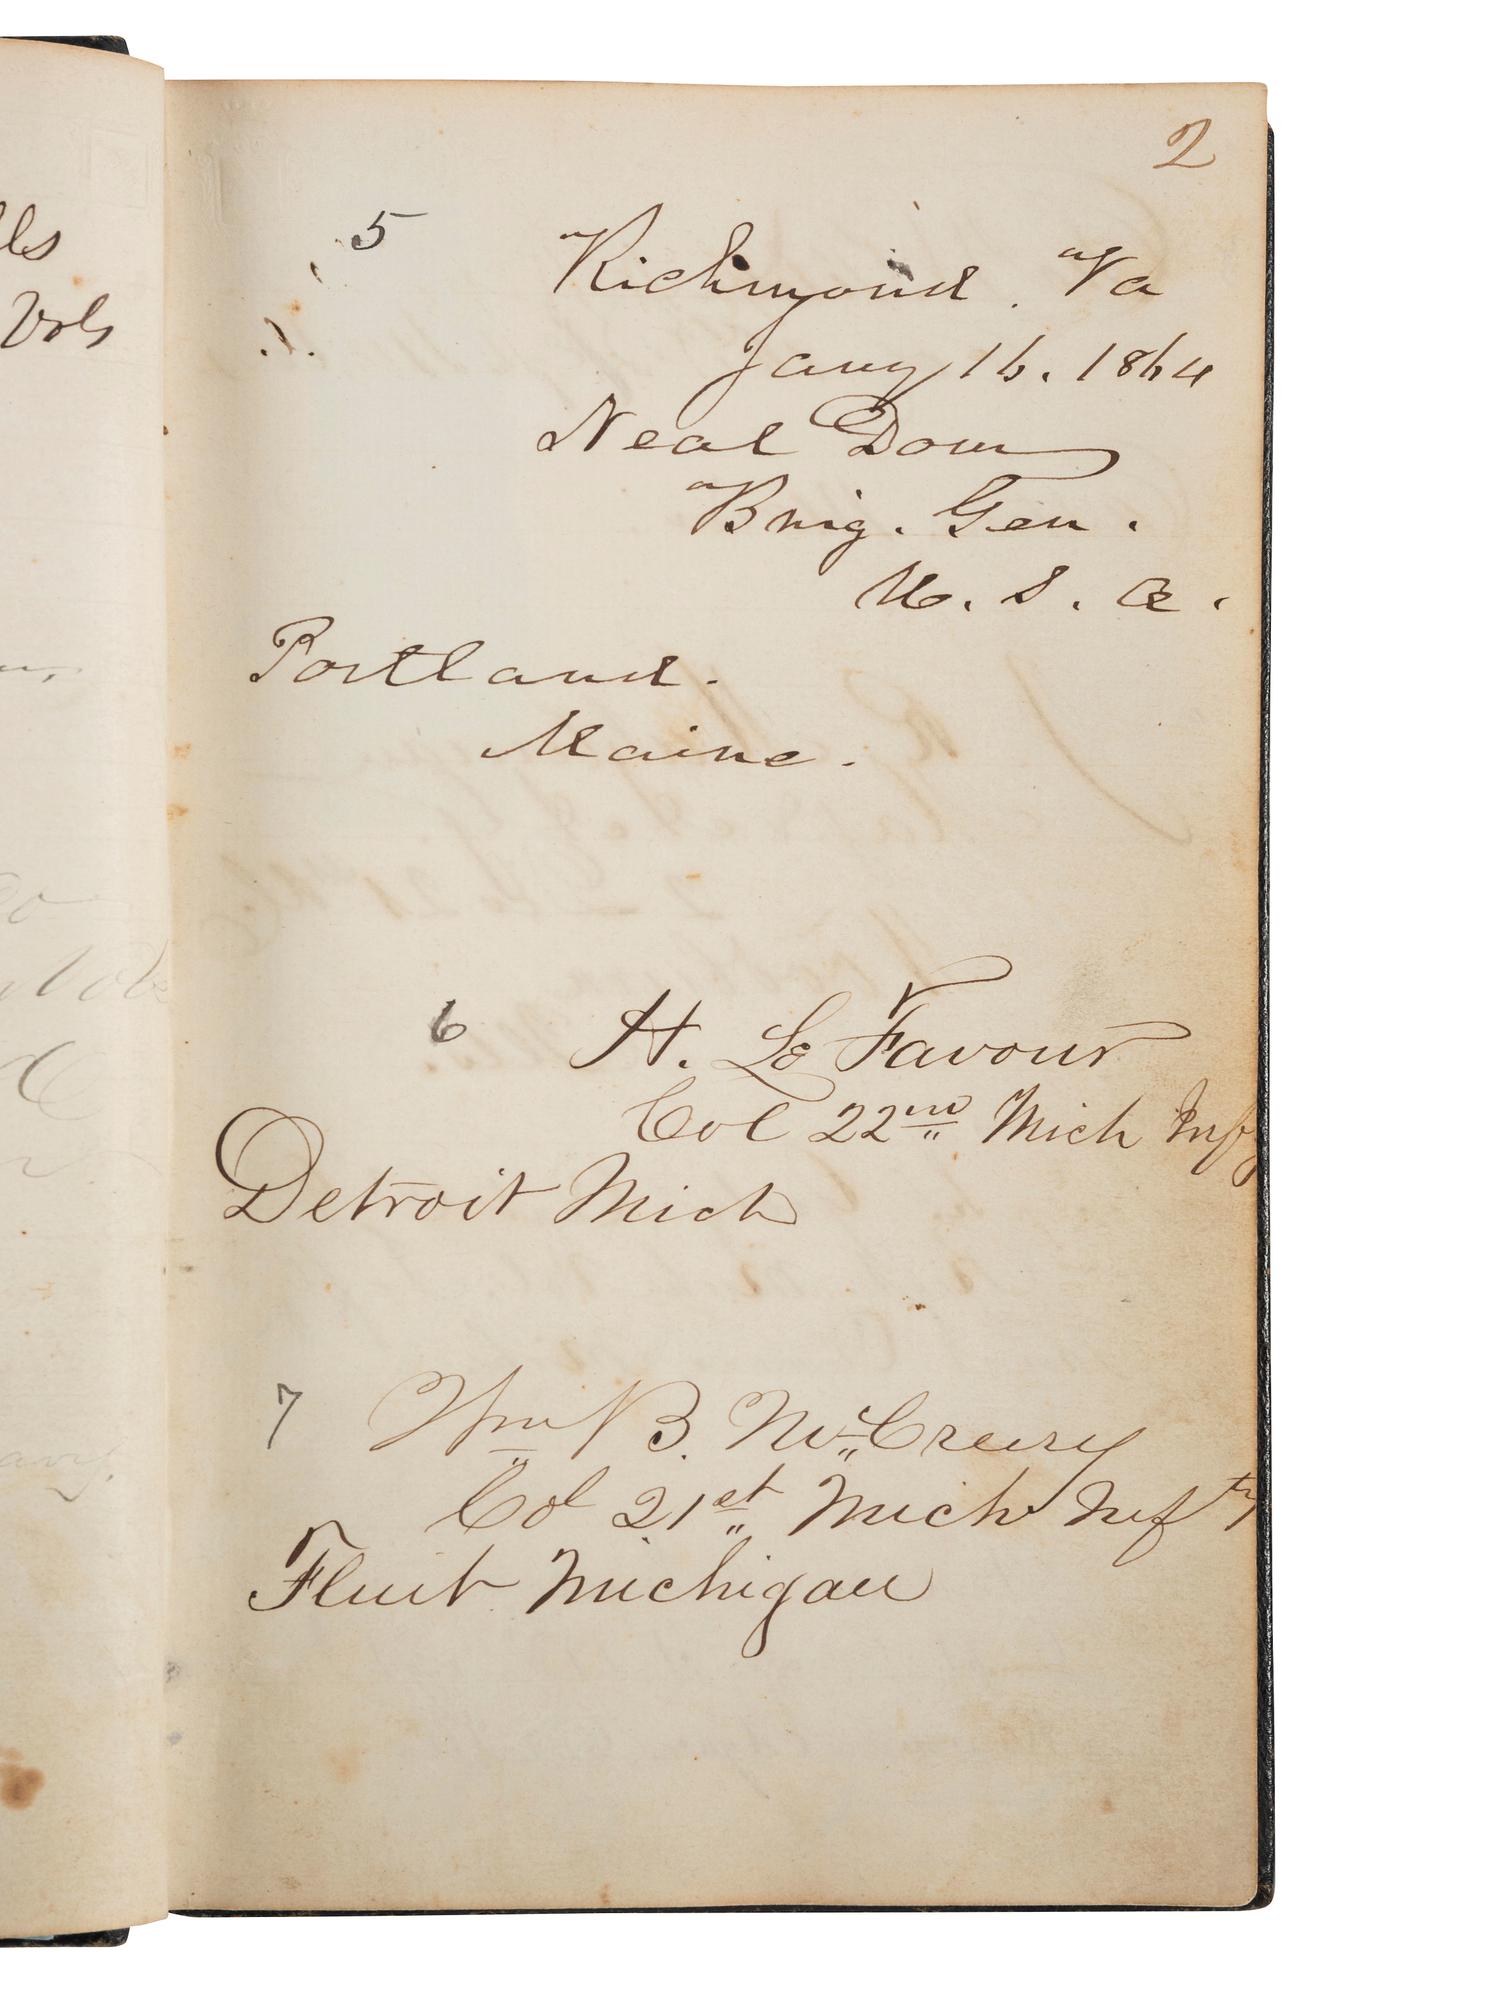 2
5 Richmond. Va
Jany 16. 1864
Neal Dow
Brig. Gen.
U. S. A.
Portland.
Maine.
6 H. Le Favour
Col 22nd Mich Infy
Detroit Mich
7 Wm B. McCreery
Col 21st Mich Infty
Flint Michigan
Vols